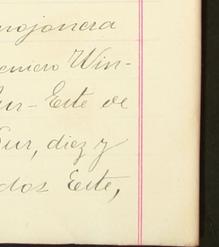 mojonera
Win-
Sur-Este de
Sur, diez y
dos Este,